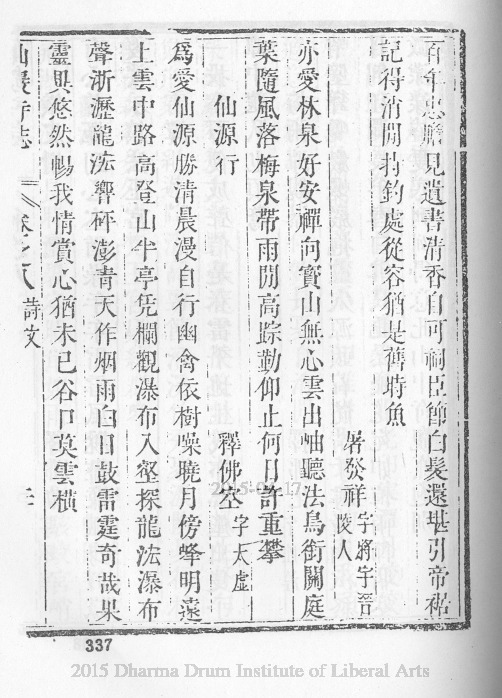 百年忠膽見遺書清香自可祠臣節白髮還堪引帝裾
記得消閒持釣處從容猶是舊時魚
屠發祥字將宇晉陵人
亦愛林泉好安禪向寶山無心雲出岫聽法鳥銜關庭
葉隨風落梅泉帶雨閒高踪勤仰止何日許重攀
仙源行
釋佛空字太虛
為愛仙源勝清晨漫自行幽禽依樹噪曉月傍峰明遠
上雲中路高登山半亭凭欄觀瀑布入壑探龍湫瀑布
聲淅瀝龍湫響砰澎青天作烟雨白日鼓雷霆奇哉果
靈異悠然暢我情賞心猶未已谷口莫雲橫
仙巖寺志
卷之八
詩文
2015-03-17
337
2015 Dharma Drum Institute of Liberal Arts